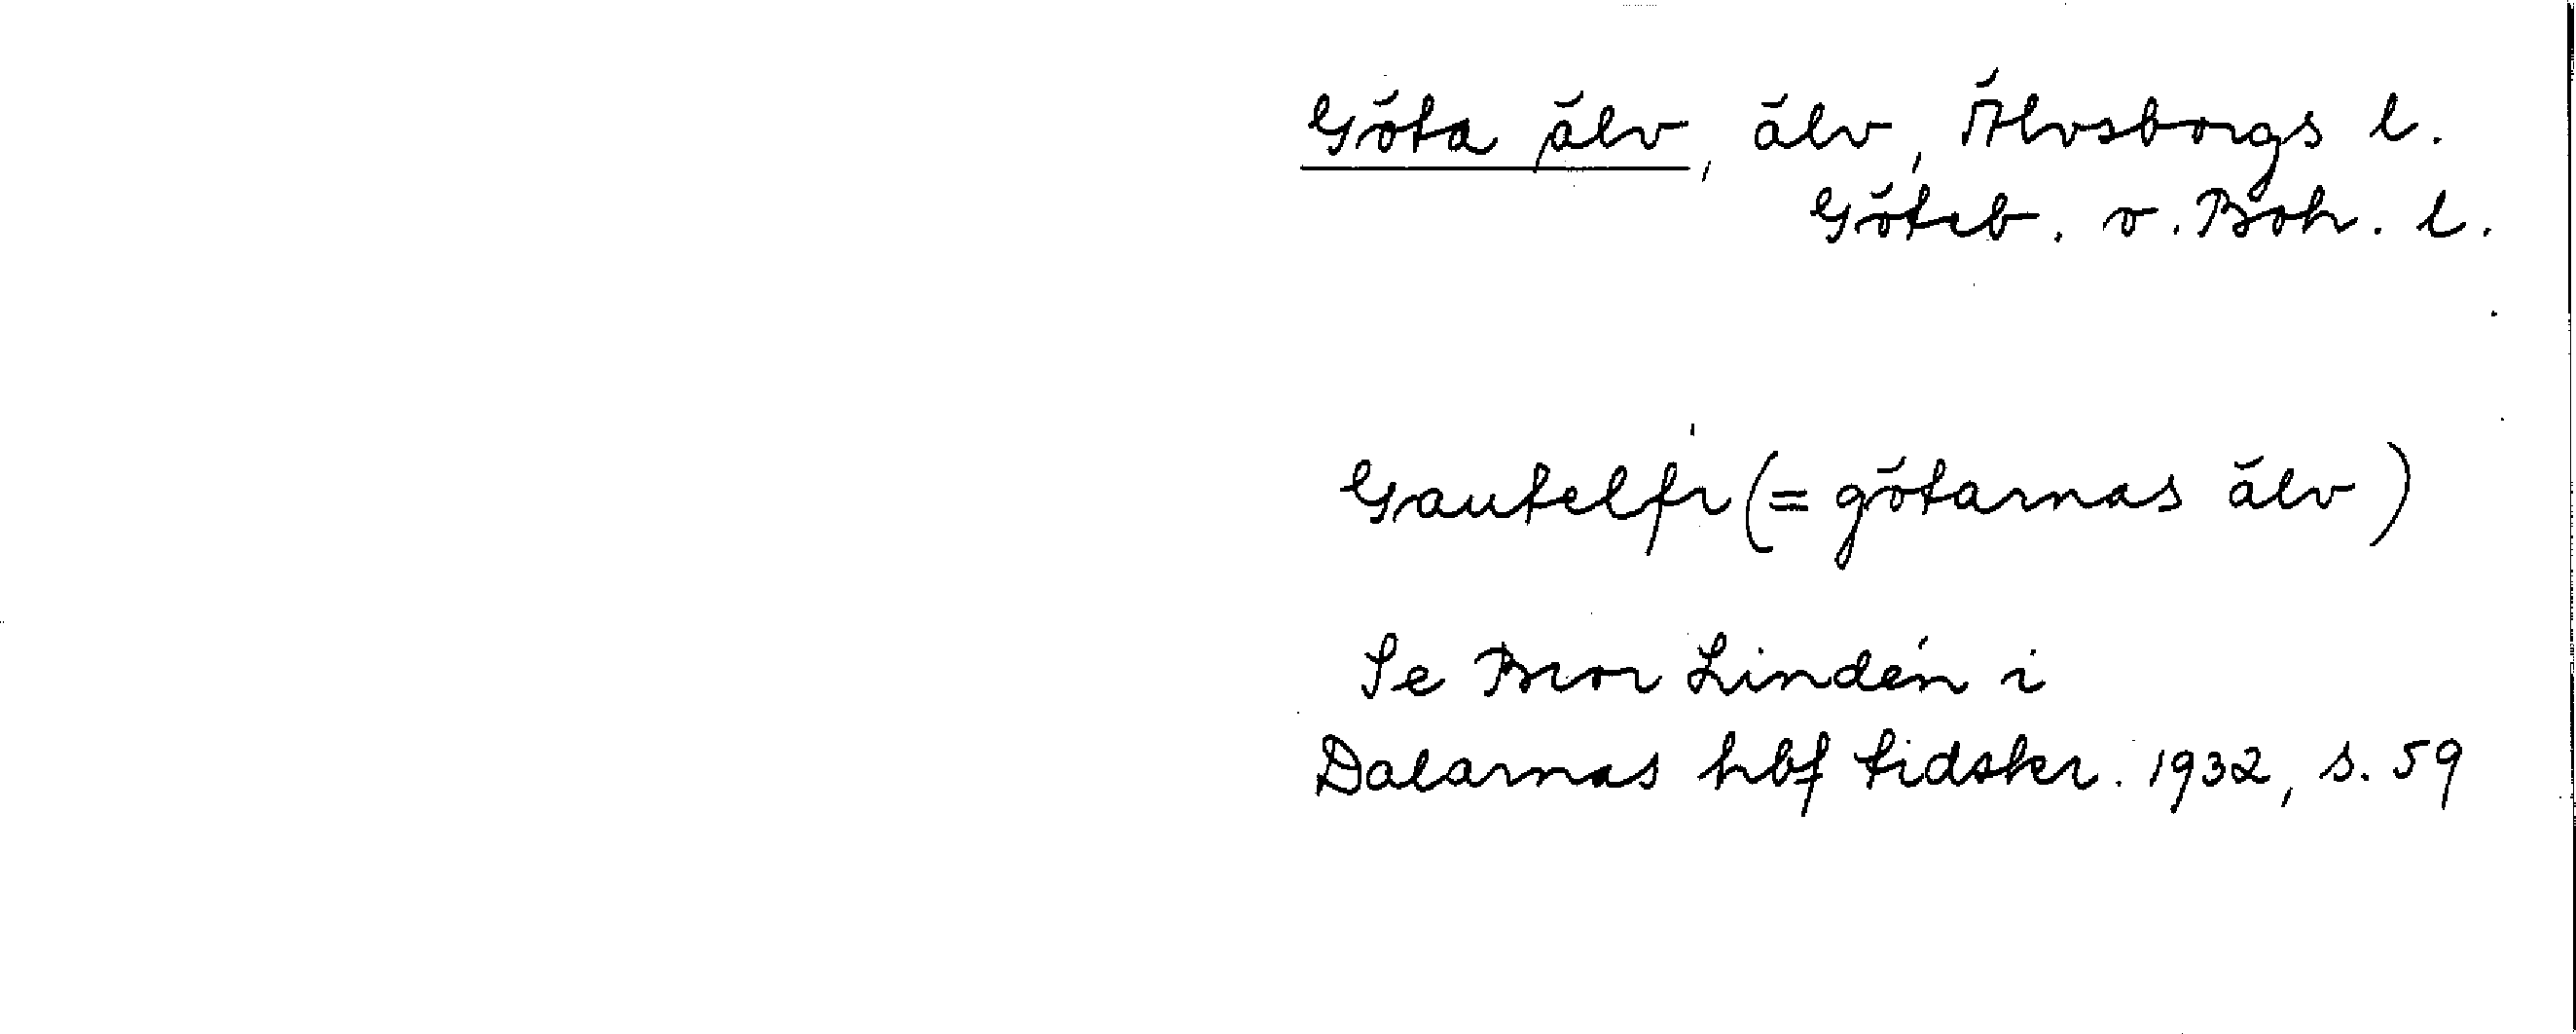 Göta älv, älv, Älvsborgs l.
Göteb. o. Boh. l.
Gautelfr (= götarnas älv)
Se Bror Lindén i
Dalarnas hbf tidskr. 1932, s. 59